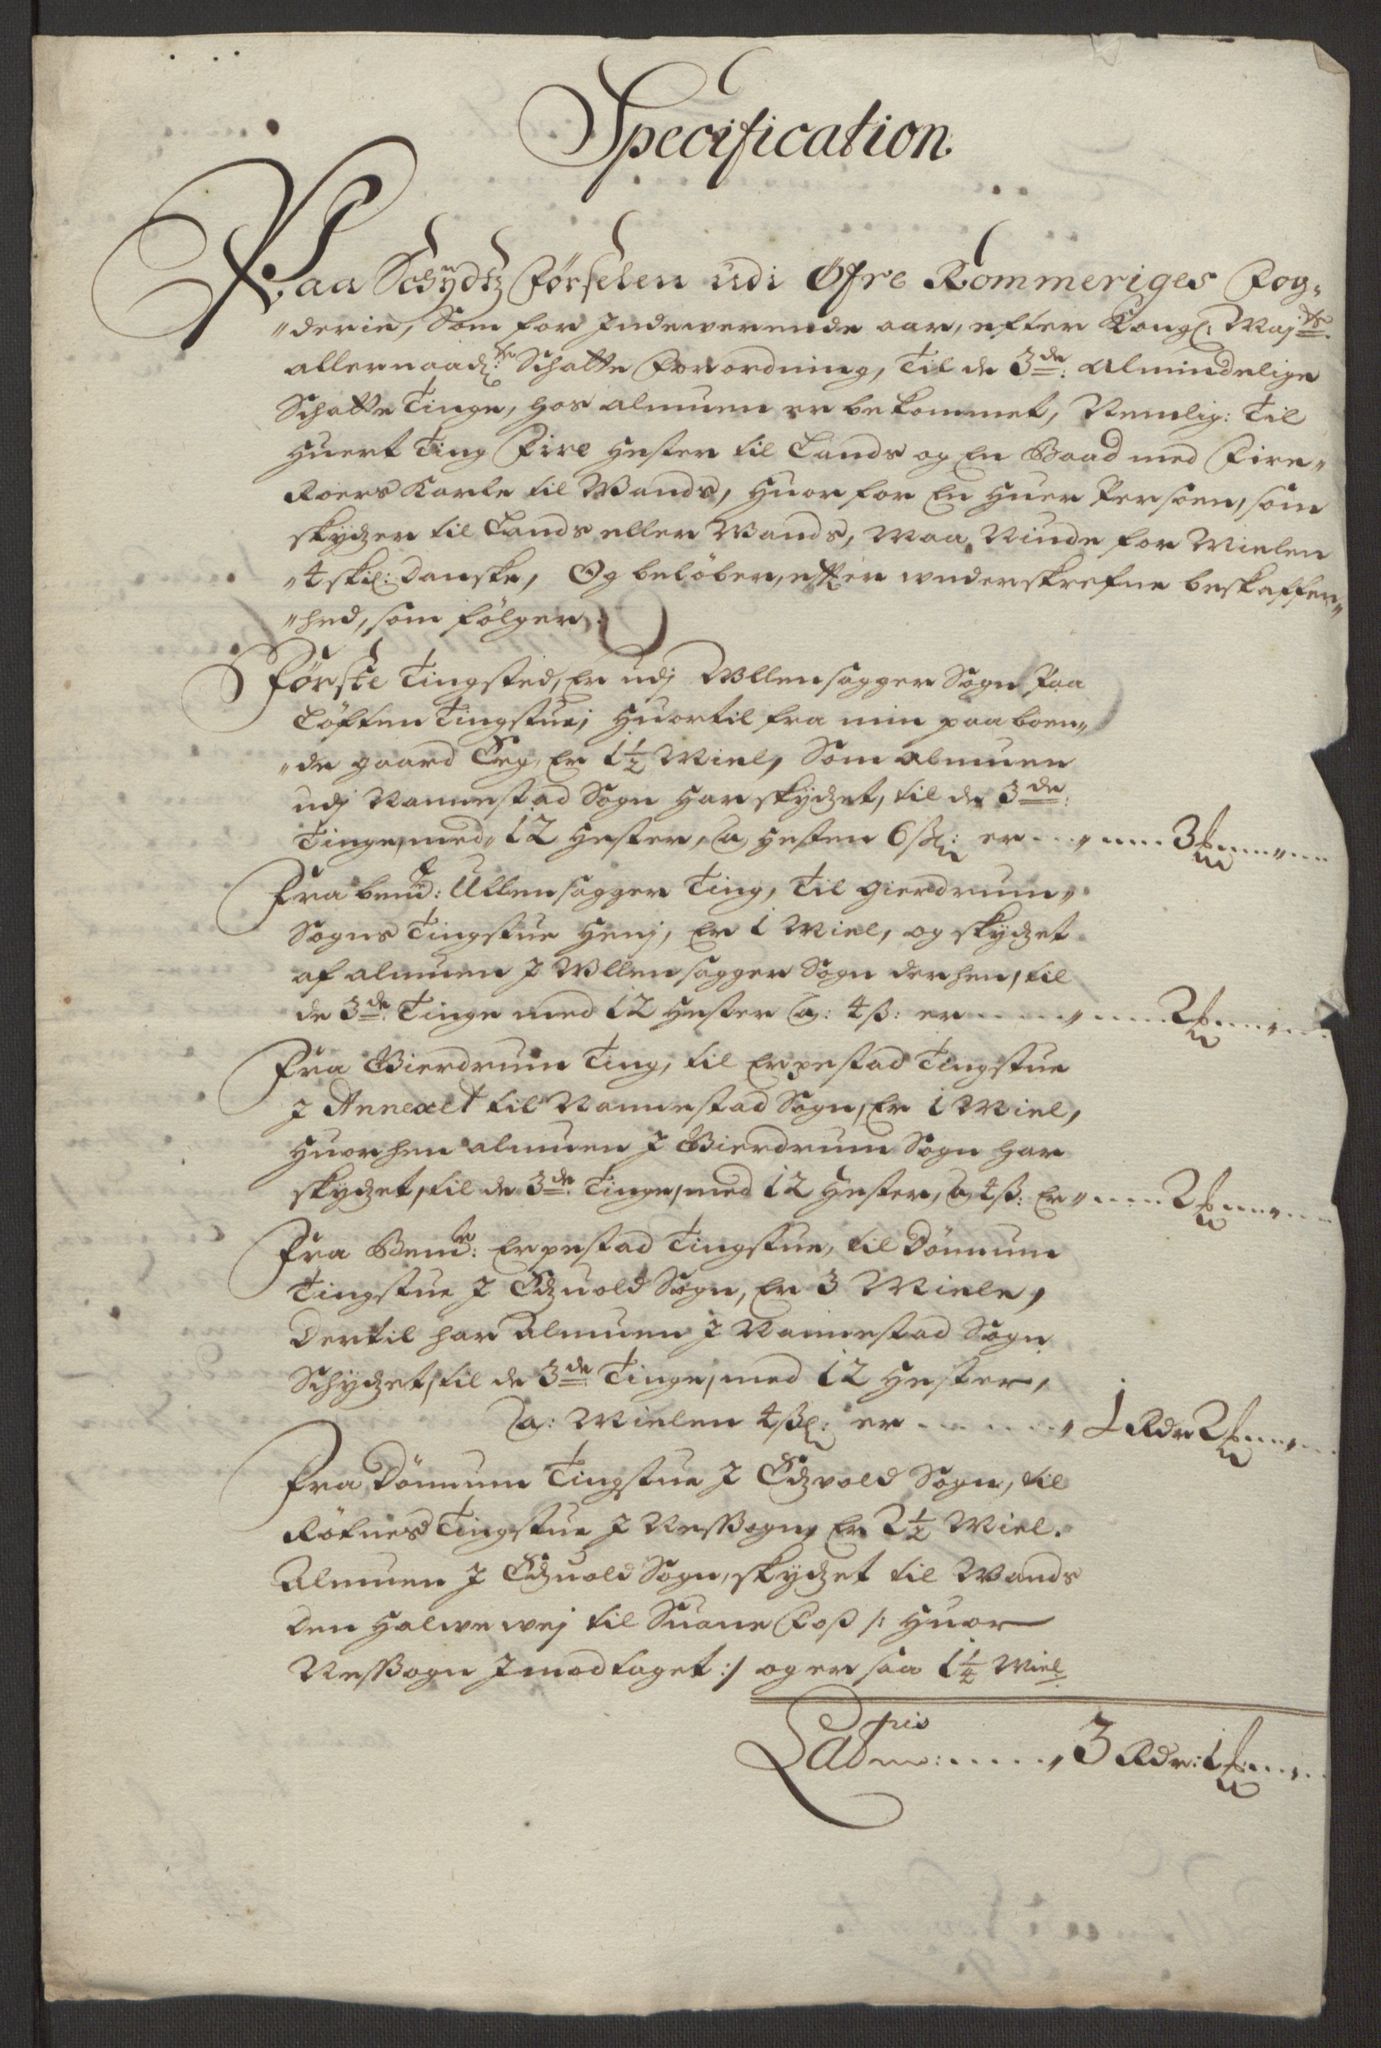 Specification.
Paa Schydtz Førselen udi Øfre Rommeriges Fog„
„derie, Som for Indewerende aar, efter Kongl: Maj:ts
allernaad:ste Schatte Forordning, Til de 3de: Almindelige
Schatte Tinge, hos almuen er bekommet, Nemlig: Til
huert Ting Fire hester til Lands og En Baad med Fire„
Roers Karle til Wands, huor for En huer Persoen, som
skydzer til Lands eller Wands, maa Niude for Mielen
„4 skil: Danske, Og beløber, efter underskrefne beskaffen„
„hed, som følger.
Første Tingsted, Er udj Ullensagger Sogn Paa
Løften Tingstue, huortil fra min paaboen„
„de gaard Eeg, Er 1½ Miel, Som almuen
udj Nannestad Sogn har skydzet, til de 3de:
Tinge, med 12 hester, a hesten 6 sk: er 3
Fra bem:te: Ullensagger Ting, Til Gierdrum„
Sogns Tingstue henj, Er 1 Miel, og skydzet
af almuen J Ullensagger Sogn derhen, til
de 3de: Tinge med 12 hester a: 4 ß: er 2
Fra Gierdrum Ting, til Erpestad Tingstue
J Annexet til Nannestad Sogn, Er 1 Miel,
huorhen almuen J Gierdrum Sogn har
skydzet, til de 3de: Tinge, med 12 hester, a 4 ß: Er 2
Fra Bem:te: Erpestad Tingstue, til Dønnum
Tingstue J Edzuold Sogn, Er 3 Miele,
Dertil har Almuen J Nannestad Sogn
Schydzet, til de 3de: Tinge, med 12 hester,
a: Mielen 4 ßl: er 1 Rdr 2
Fra Dønnum Tingstue J Edzvold Sogn, til
Røfnes Tingstue J Neßsogn, Er 2½ Miel.
Almuen J Edzuold Sogn, skydzet til Wands
den halwe wej til Suane Foß /: huor
Neßsogn Jmodtaget :/ og er saa 1¼ Miel
Latpris 3 Rdr: 1